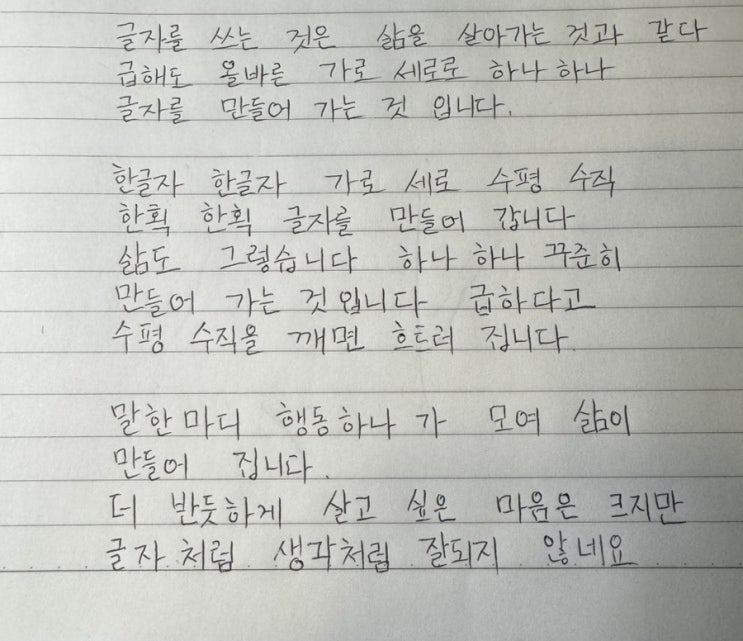 글자를 쓰는 것은 삶을 살아가는 것과 같다
급해도 올바른 가로 세로로 하나 하나
글자를 만들어 가는 것 입니다.
한글자 한글자 가로 세로 수평 수직
한획 한획 글자를 만들어 갑니다
삶도 그렇습니다 하나 하나 꾸준히
만들어 가는 것 입니다 급하다고
수평 수직을 깨면 흐트러 집니다.
말한마디 행동하나 가 모여 삶이
만들어 집니다.
더 반듯하게 살고 싶은 마음은 크지만
글자 처럼 생각처럼 잘되지 않네요